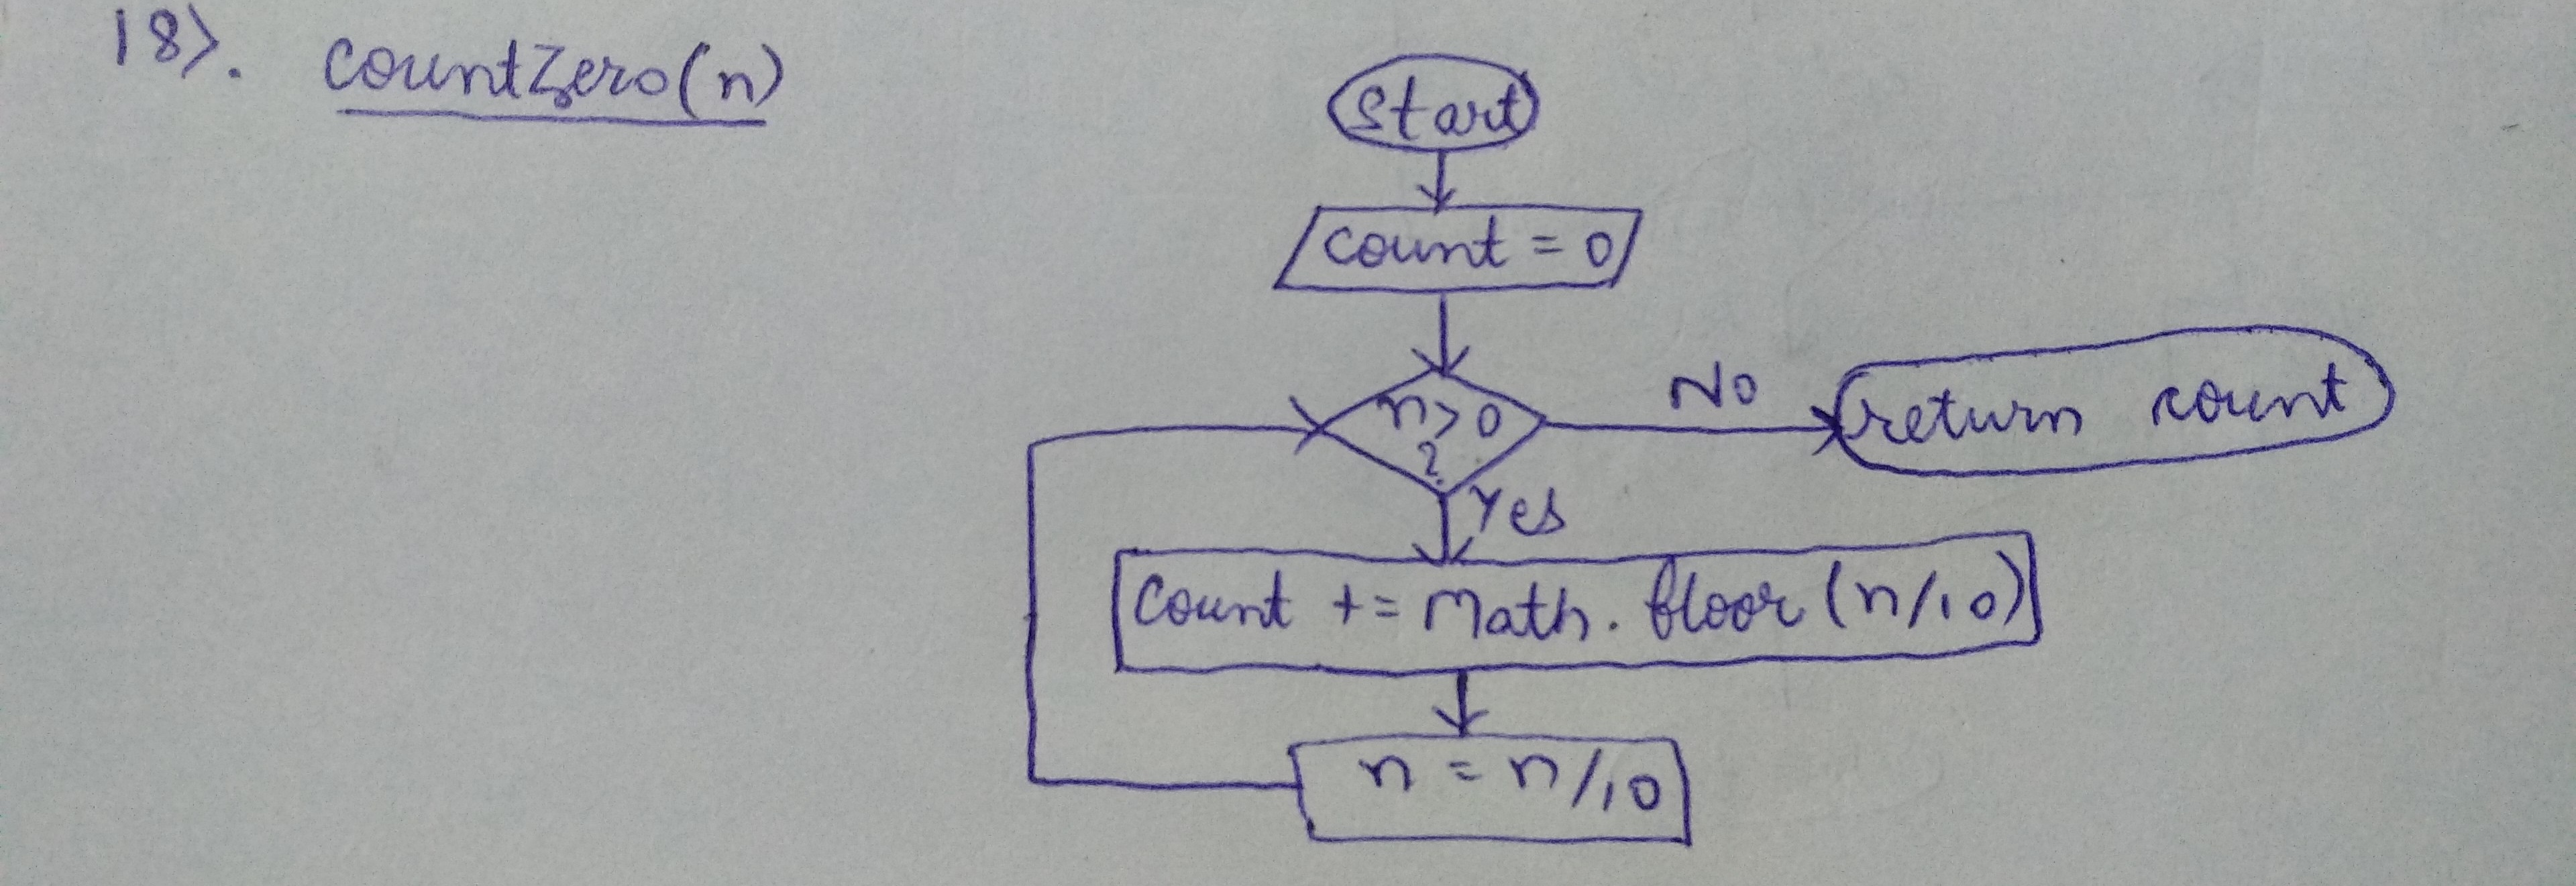 18>. countZero(n)
Start
count = 0
n>0
?
No
return count
Yes
Count += Math.floor(n/10)
n = n/10